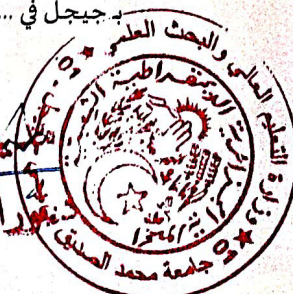 بـ جيجل في ...
وزارة التعليم العالي والبحث العلمي
الجمهورية الجزائرية الديمقراطية الشعبية
جامعة محمد الصديق